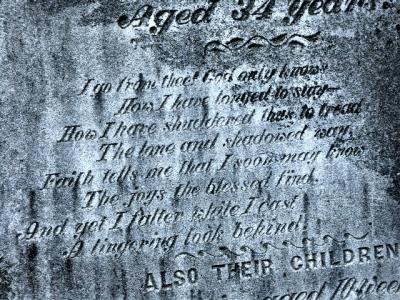 Aged 34 Years.
I go from thee! God only knows
How I have longed to stay
How I have shuddered thus to tread
The lone and shadowed way,
Faith tells me that I soon may know
The joys the blessed find.
And yet I falter while I cast
A lingering look behind.
ALSO THEIR CHILDREN
aged 10 wee